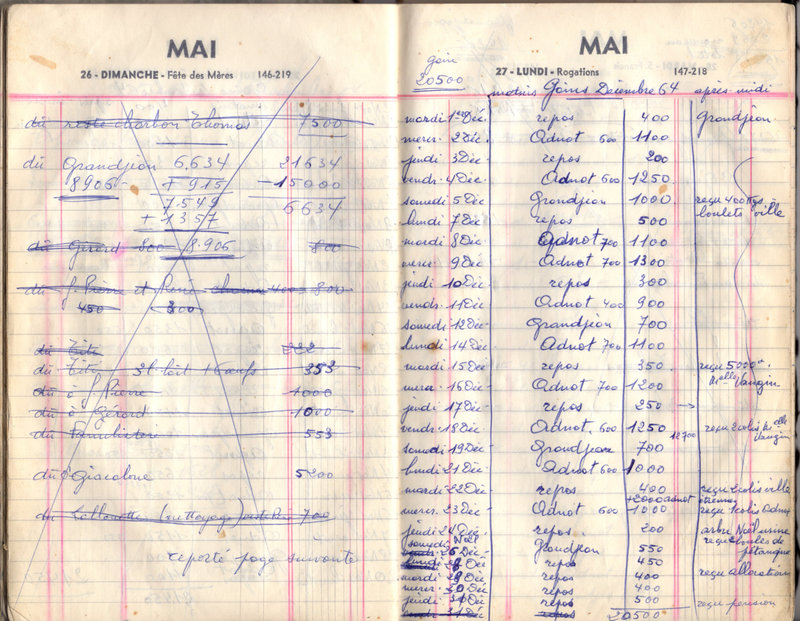 MAI
26 - DIMANCHE - Fête des Mères 146-219
du reste charbon Thomas 7500
du Grandjean 6,634 21634
8906 + 915 - 15000
7549 6634
+ 1357
du Gérard 800 8.906 800
du J. Pierre et Renée 400 800
450 300
du Titi 222
du Titi 3l lait 16 œufs 353
du à J. Pierre 1000
du à Gérard 1000
du Familistère 553
du Giacobine 5200
du (nettoyage) 700
reporté page suivante
MAI
gain
20500
27 - LUNDI - Rogations 147-218
matins Gains Décembre 64 après-midi
mardi 1er Déc. repos 400 Grandjean
mercr. 2 Déc. Adnot 600 1100
jeudi 3 Déc. repos 200
vendr. 4 Déc. Adnot 600 1250
samedi 5 Déc. Grandjean 1000 reçu 400 kgs
lundi 7 Déc. repos 500 boulets ville
mardi 8 Déc. Adnot 700 1100
mercr. 9 Déc. Adnot 700 1300
jeudi 10 Déc. repos 300
vendr. 11 Déc. Adnot 400 900
samedi 12 Déc. Grandjean 700
lundi 14 Déc. Adnot 700 1100
mardi 15 Déc. repos 350 reçu 5000
mercr. 16 Déc. Adnot 700 1200 Melle Vaugin
jeudi 17 Déc. repos 250 →
vendr. 18 Déc. Adnot 600 1250 reçu 2 colis Melle Vaugin
12700
samedi 19 Déc. Grandjean 700
lundi 21 Déc. Adnot 600 1000
mardi 22 Déc. repos 400 reçu 2 colis ville
+2000 adnot étrennes
mercr. 23 Déc. Adnot 600 1000 reçu 1 colis Adnot
jeudi 24 Déc. repos 200 arbre Noël usine
samedi Noël reçu boules de
26 Déc. Grandjean 550 pétanque
lundi 28 Déc. repos 450
mardi 29 Déc. repos 400 reçu allocation
mercr. 30 Déc. repos 400
jeudi 31 Déc. repos 500 reçu pension
31 Déc. repos 20500